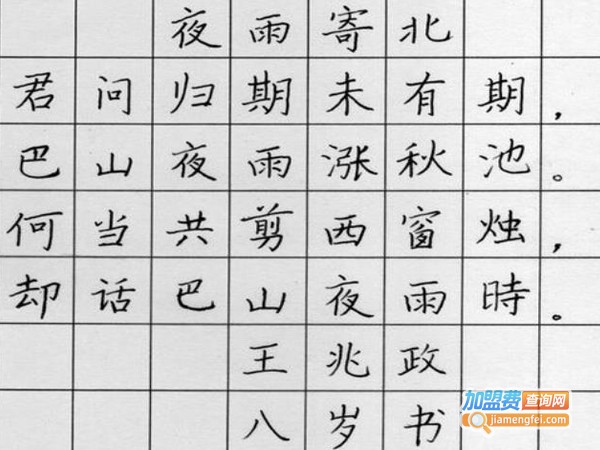 夜雨寄北
君问归期未有期，
巴山夜雨涨秋池。
何当共剪西窗烛，
却话巴山夜雨時。
王兆政
八岁书
加盟费查询网
jiamengfei.com